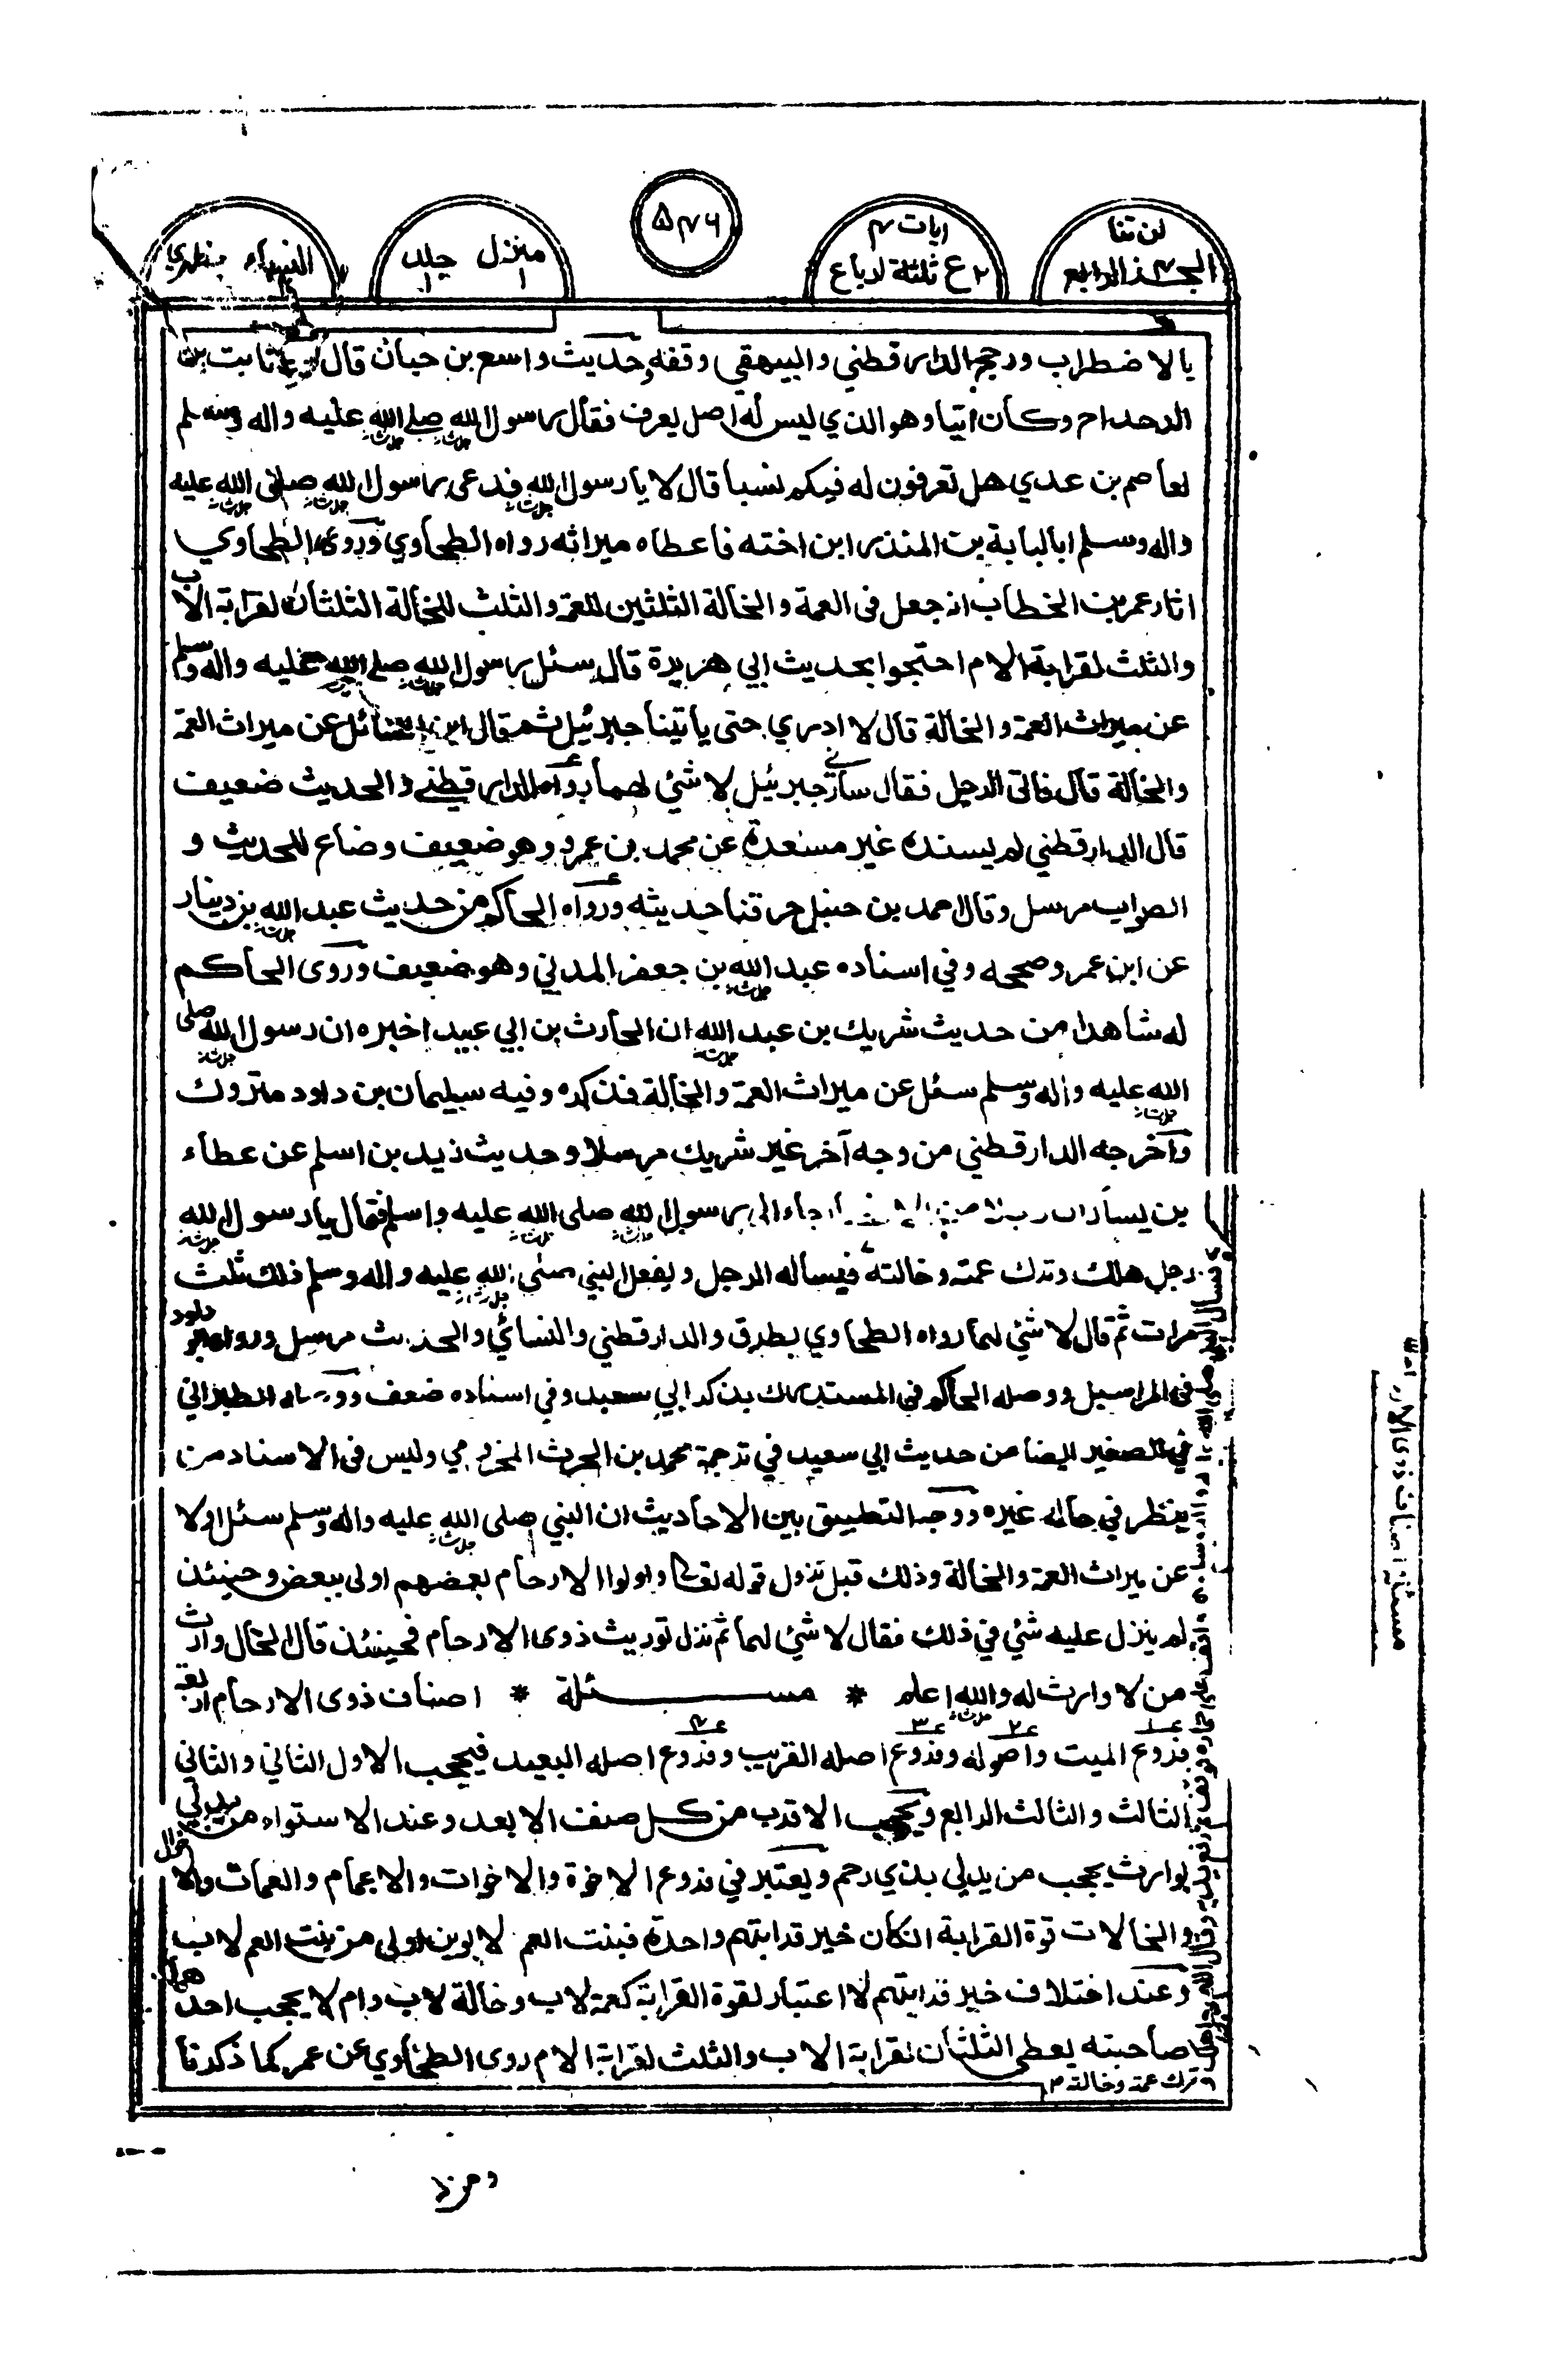 لن تنا
الجزء الرابع
ايات ۴
۲ ع ثلثة ارباع
۵۴۶
منزل ۱ جلد ۱
النساء مظهري
بالاضطراب ورجح الدارقطني والبيهقي وقفه وحديث واسع بن حبان قال ثابت بن
الدحداح وكان اتيا وهو الذي ليس له اصل يعرف فقال رسول الله صلے الله عليه واله وسلم
لعاصم بن عدي هل تعرفون له فيكم نسبا قال لا يا رسول الله فدعى رسول الله صلى الله عليه
واله وسلم ابا لبابة بن المنذر ابن اخته فاعطاه ميراثه رواه الطحاوي وروى الطحاوي
اثار عمر بن الخطاب انه جعل فى العمة والخالة الثلثين للعمة والثلث للخالة الثلثان لقرابة الاب
والثلث لقرابة الام احتجوا بحديث ابي هريرة قال سئل رسول الله صلے الله عليه واله وسلم
عن ميراث العمة والخالة قال لا ادري حتى ياتينا جبرئيل ثم قال اين السائل عن ميراث العمة
والخالة قال فاتى الرجل فقال سارني جبرئيل لا شئ لهما رواه الدارقطنے والحديث ضعيف
قال الدارقطني لم يسنده غير مسعدة عن محمد بن عمرو وهو ضعيف وضاع للحديث و
الصواب مرسل وقال احمد بن حنبل حرقنا حديثه ورواه الحاكم من حديث عبد الله بن دينار
عن ابن عمر وصححه وفي اسناده عبد الله بن جعفر المدني وهو ضعيف وروى الحاكم
له شاهدا من حديث شريك بن عبد الله ان الحارث بن ابي عبيد اخبره ان رسول الله صلى
الله عليه واله وسلم سئل عن ميراث العمة والخالة فذكره وفيه سليمان بن داود متروك
واخرجه الدارقطني من وجه آخر غير شريك مرسلا وحديث زيد بن اسلم عن عطاء
بن يسار ان جاء الى رسول الله صلى الله عليه وسلم فقال يا رسول الله
رجل هلك وترك عمته وخالته فيساله الرجل ويفعل النبي صلى الله عليه واله وسلم ذلك ثلث
مرات ثم قال لا شئ لهما رواه الطحاوي بطرق والدارقطني والنسائي والحديث مرسل ورواه ابو داود
فى المراسيل ووصله الحاكم فى المستدرك بذكر ابي سعيد وفي اسناده ضعف ورواه الطبراني
في الصغير ايضا من حديث ابي سعيد في ترجمة محمد بن الحرث المخزومي وليس فى الاسناد من
ينظر في حاله غيره ووجه التطبيق بين الاحاديث ان النبي صلى الله عليه واله وسلم سئل اولا
عن ميراث العمة والخالة وذلك قبل نزول قوله تعالى واولوا الارحام بعضهم اولى ببعض وحينئذ
لم ينزل عليه شئ في ذلك فقال لا شئ لهما ثم نزل توريث ذوى الارحام فحينئذ قال الخال وارث
من لا وارث له والله اعلم * مســـئلة * اصناف ذوى الارحام اربعة
فروع الميت واصوله وفروع اصله القريب وفروع اصله البعيد فيحجب الاول الثاني والثاني
الثالث والثالث الرابع ويحجب الاقرب من كل صنف الابعد وعند الاستواء من يدلي
بوارث يحجب من يدلى بذي رحم ويعتبر في فروع الاخوة والاخوات والاعمام والعمات والاخوال
والخالات قوة القرابة انكان خير قرابتهم واحدة فبنت العم لابوين اولى من بنت العم لاب
وعند اختلاف خير قرابتهم لا اعتبار لقوة القرابة كعمة لاب وخالة لاب وام لا يحجب احدهما
صاحبته يعطى الثلثان لقرابة الاب والثلث لقرابة الام روى الطحاوي عن عمر كما ذكرنا
ترك عمة وخالة م
مسئلة اصناف ذوى الار